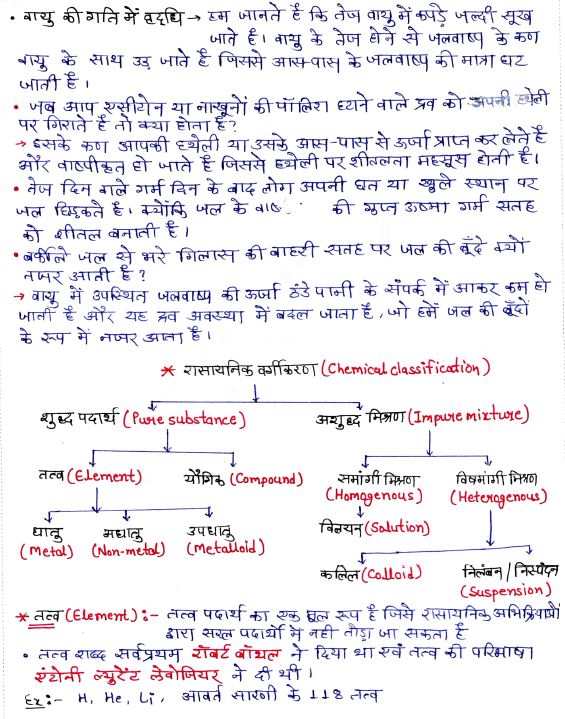 • वायु की गति में वृद्धि → हम जानते हैं कि तेज वायु में कपड़े जल्दी सूख
जाते हैं। वायु के तेज होने से जलवाष्प के कण
वायु के साथ उड़ जाते हैं जिससे आस-पास के जलवाष्प की मात्रा घट
जाती है।
• जब आप एसीटोन या नाखूनों की पॉलिश हटाने वाले द्रव को अपनी हथेली
पर गिराते हैं तो क्या होता है?
→ इसके कण आपकी हथेली या उसके आस-पास से ऊर्जा प्राप्त कर लेते हैं
और वाष्पीकृत हो जाते हैं जिससे हथेली पर शीतलता महसूस होती है।
• तेज दिन वाले गर्म दिन के बाद लोग अपनी छत या खुले स्थान पर
जल छिड़कते हैं। क्योंकि जल के वाष्प की गुप्त ऊष्मा गर्म सतह
को शीतल बनाती है।
• बर्फीले जल से भरे गिलास की बाहरी सतह पर जल की बूँदे क्यों
नजर आती है?
→ वायु में उपस्थित जलवाष्प की ऊर्जा ठंडे पानी के संपर्क में आकर कम हो
जाती है और यह द्रव अवस्था में बदल जाता है, जो हमें जल की बूँदों
के रूप में नजर आता है।
* रासायनिक वर्गीकरण (Chemical classification)
शुद्ध पदार्थ (Pure substance) अशुद्ध मिश्रण (Impure mixture)
तत्व (Element) यौगिक (Compound) समांगी मिश्रण विषमांगी मिश्रण
(Homogenous) (Heterogenous)
धातु अधातु उपधातु विलयन (Solution)
(Metal) (Non-metal) (Metalloid)
कलिल (Colloid) निलंबन/निस्पंदन
(Suspension)
* तत्व (Element) :- तत्व पदार्थ का एक मूल रूप है जिसे रासायनिक अभिक्रियाओं
द्वारा सरल पदार्थों में नही तोड़ा जा सकता है
• तत्व शब्द सर्वप्रथम रॉबर्ट बॉयल ने दिया था एवं तत्व की परिभाषा
एंटोनी ल्युरेंट लेवोजियर ने दी थी।
Ex:- H, He, Li, आवर्त सारणी के 118 तत्व